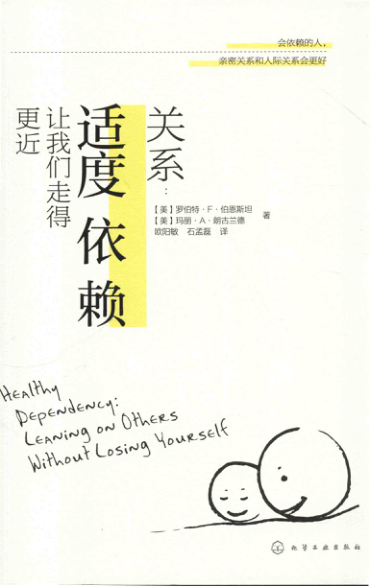 会依赖的人，
亲密关系和人际关系会更好
关系：
适度依赖
让我们走得
更近
【美】罗伯特·F·伯恩斯坦
【美】玛丽·A·朗古兰德
著
欧阳敏 石孟磊 译
Healthy
Dependency:
Leaning on Others
Without Losing Yourself
化学工业出版社